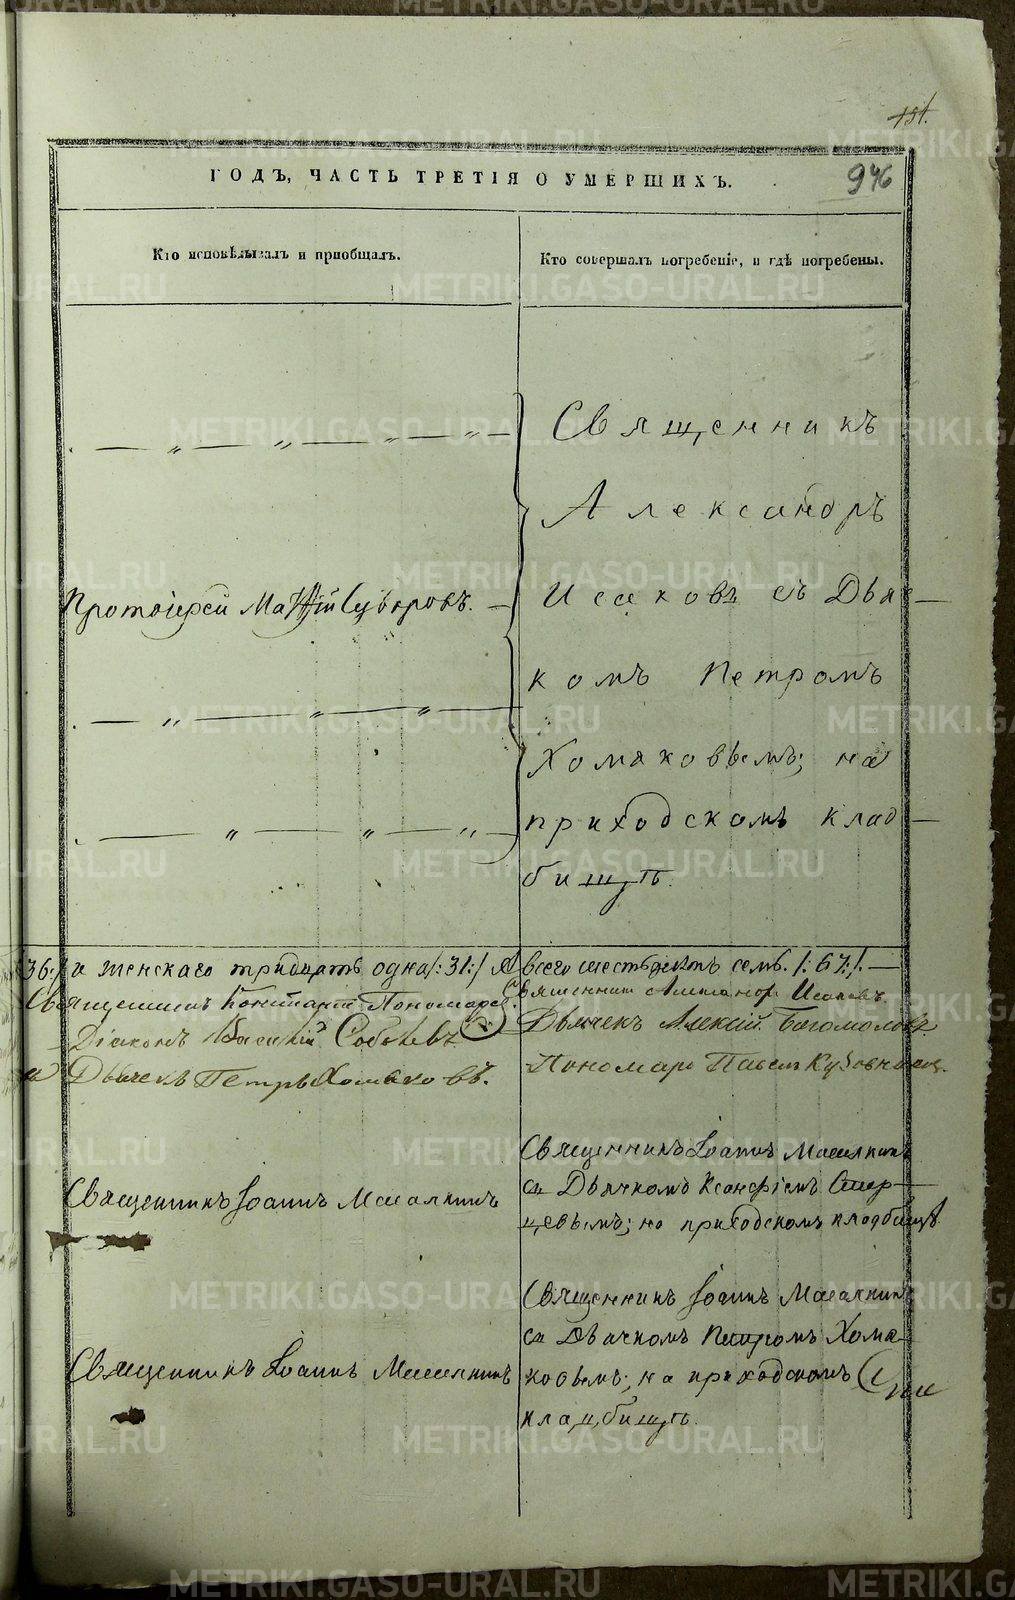 151.
946
ГОДЪ, ЧАСТЬ ТРЕТІЯ О УМЕРШИХЪ.
Кто исповѣдывалъ и приобщалъ.
Кто совершалъ погребеніе, и гдѣ погребены.
Священникъ
Александръ
Протоіерей
Исаковъ съ Дьяч-
комъ Петромъ
Хомяковымъ; на
приходскомъ клад-
бищѣ.
36:/ и женскаго тридцать одна /:31:/ А всего шестьдесятъ семь. /:67:/. —
Священникъ Пономарев.
Діаконъ Василій Соболевъ
и Дьячекъ Петръ Хомяковъ.
Священникъ Александръ Исаковъ.
Дьячекъ Алексій Богомоловъ
Пономарь Павелъ
Священникъ Іоаннъ Масалкинъ
Священникъ Іоаннъ Масалкинъ
съ Дьячкомъ Ксенофомъ Стар-
цевымъ; на приходскомъ кладбищѣ
Священникъ Іоаннъ Масалкинъ
Священникъ Іоаннъ Масалкинъ
съ Дьячкомъ Петромъ Хомя-
ковымъ; на приходскомъ
кладбищѣ.
METRIKI.GASO-URAL.RU